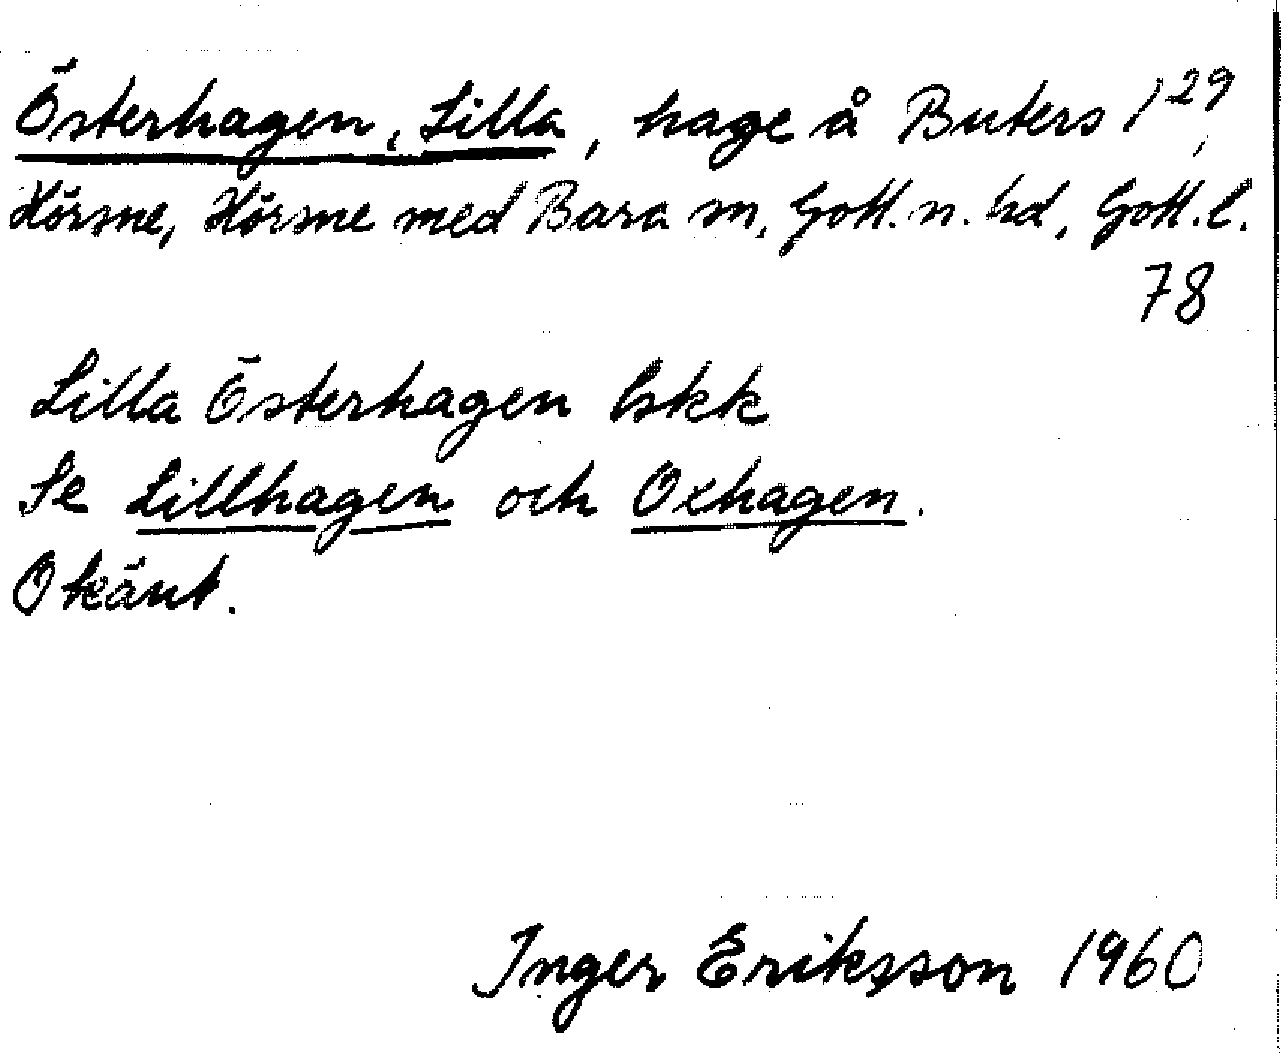 Österhagen, Lilla, hage å Buters 1²⁹,
Hörsne, Hörsne med Bara sn, Gotl. n. hd, Gotl. l.
78
Lilla Österhagen lskk
Se Lillhagen och Oxhagen.
Okänt.
Inger Eriksson 1960